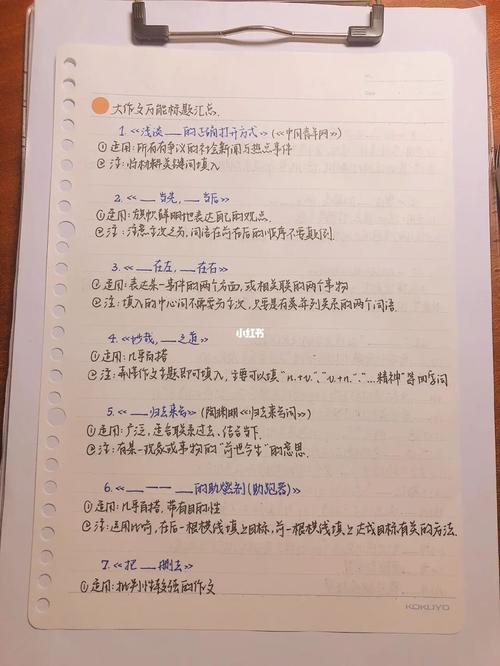 大作文万能标题汇总.
1.《浅谈__的正确打开方式》(《中国青年网》)
①适用:所有有争议的社会新闻与热点事件
②注:将材料关键词填入
2.《__当先,__当后》
①适用:旗帜鲜明地表达自己的观点.
②注:注意主次之分,词语在前在后的顺序不要颠倒.
3.《__在左,__在右》
①适用:表达某一事件的两个方面,或相关联的两个事物
②注:填入的中心词不需要分主次,只要是有类并列关系的两个词语
4.《妙哉,__之道》
①适用:几乎百搭
②注:弄懂作文主题即可填入,主要可以填"n.+v."、"v.+n."、"...精神"等四字词
5.《__归去来兮》(陶渊明《归去来兮词》)
①适用:广泛,适合联系过去、结合当下.
②注:有某一现象或事物的"前世今生"的意思.
6.《__——__的助燃剂(助跑器)》
①适用:几乎百搭,带有目的性
②注:运用比喻,在后一根横线填上目标,前一根横线填上达成目标有关的方法.
7.《把__删去》
①适用:批判性较强的作文
小红书
KOKUYO
No.
Date